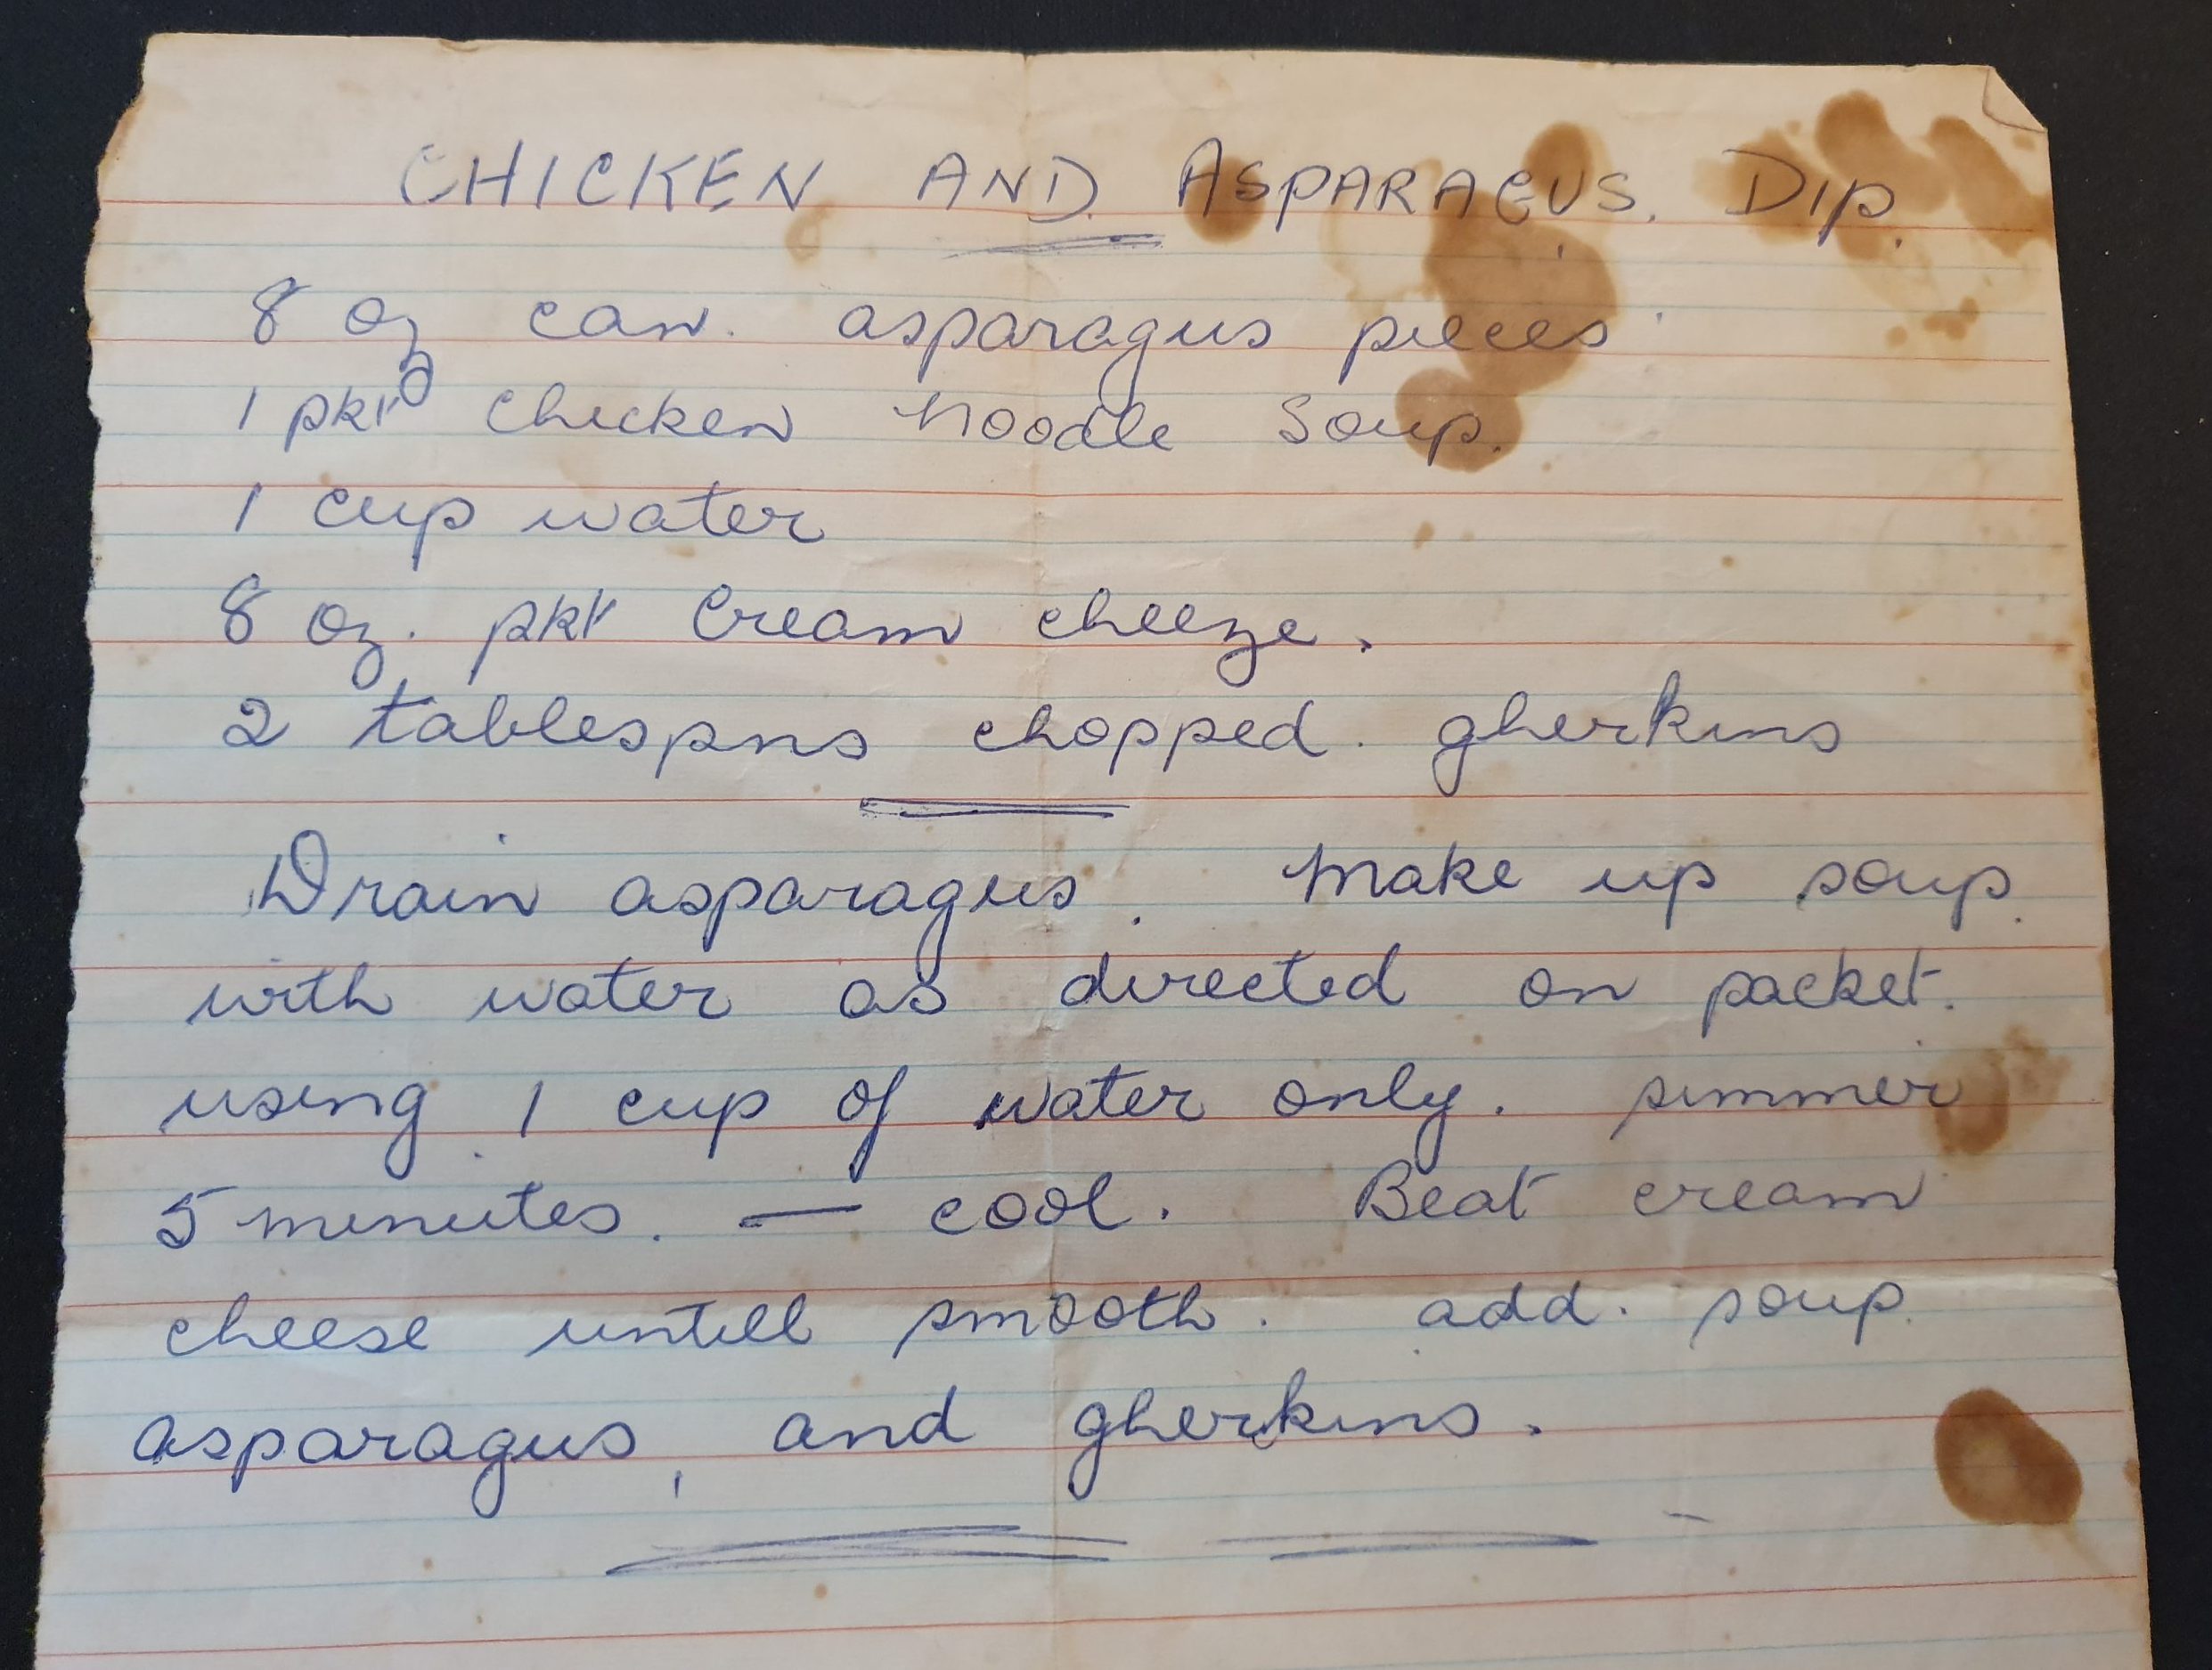 CHICKEN AND ASPARAGUS. DIP.
8 oz can. asparagus pieces
1 pkt chicken noodle soup.
1 cup water
8 oz. pkt cream cheeze.
2 tablespns chopped. gherkins
Drain asparagus. make up soup.
with water as directed on packet.
using 1 cup of water only. simmer
5 minutes. — cool. Beat cream
cheese untill smooth. add. soup.
asparagus, and gherkins.